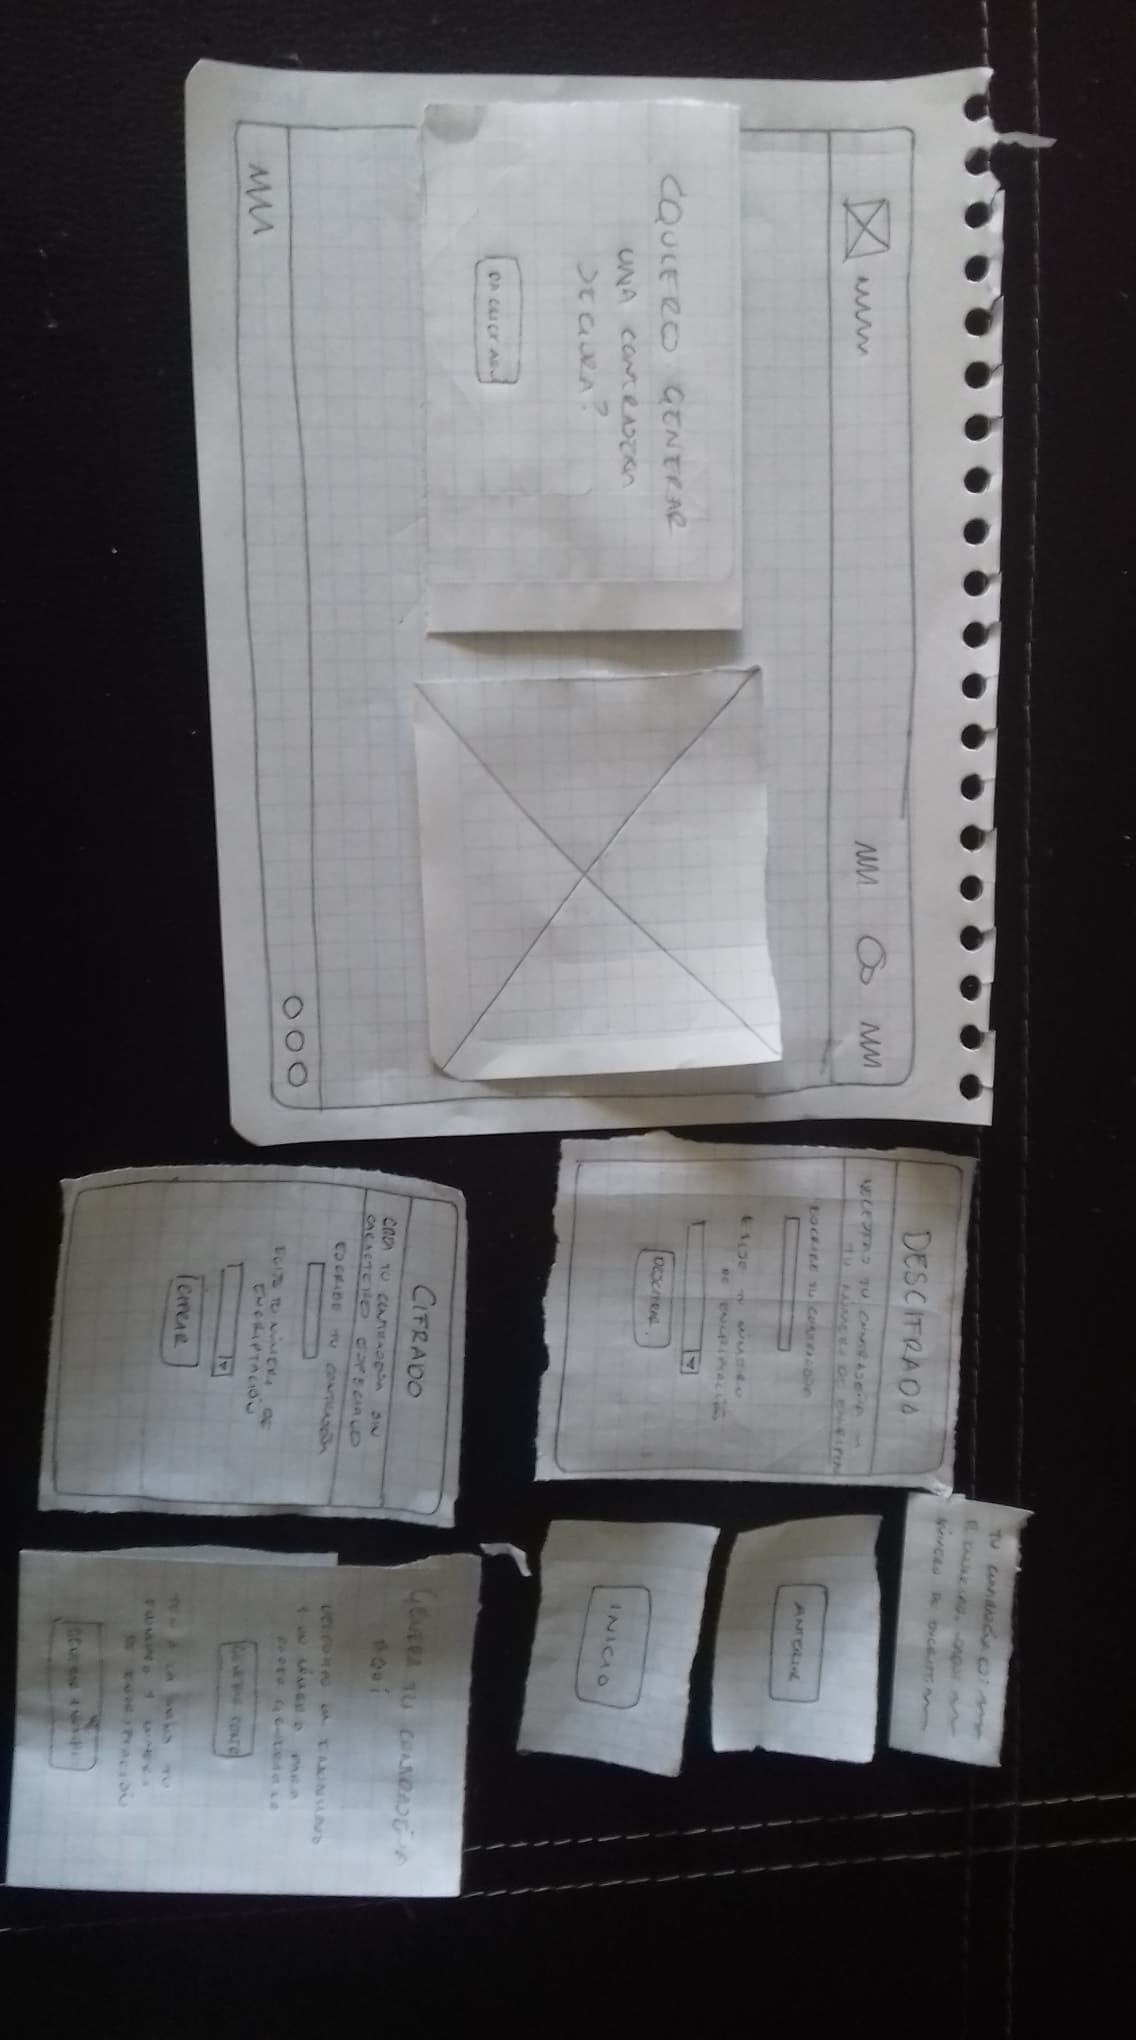 ¿QUIERO GENERAR
UNA CONTRASEÑA
SEGURA?
DA CLICK AQUI
DESCIFRADO
NECESITAS TU CONTRASEÑA
TU NÚMERO DE
ESCRIBE TU CONTRASEÑA
ELIJE TU NÚMERO
DE ENCRIPTACIÓN
DESCIFRAR
TU CONTRASEÑA
NÚMERO DE
ANTERIOR
INICIO
CIFRADO
CREA TU CONTRASEÑA SIN
CARACTERES ESPECIALES
ESCRIBE TU CONTRASEÑA
ELIJE TU NÚMERO DE
ENCRIPTACIÓN
CIFRAR
GENERA TU CONTRASEÑA
AQUÍ
Y UN NÚMERO PARA
PODER GENERARLA
GENERAR CONTR
TEN A LA MANO TU
Y NÚMERO
DE ENCRIPTACIÓN
GENERAR